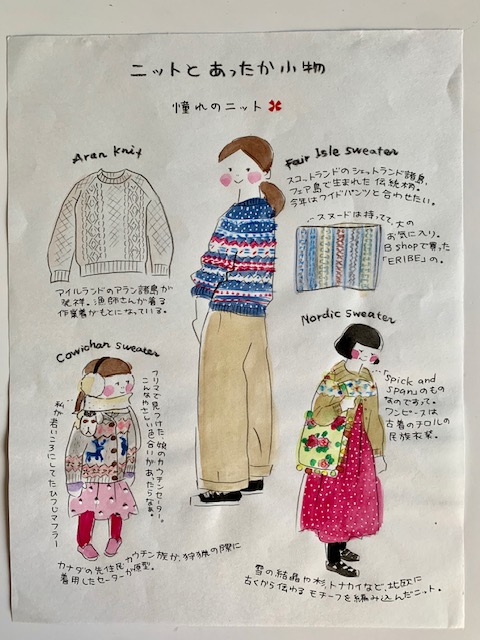 ニットとあったか小物
憧れのニット
Aran knit
アイルランドのアラン諸島が
発祥。漁師さんが着る
作業着がもとになっている。
Fair Isle sweater
スコットランドのシェットランド諸島、
フェア島で生まれた伝統柄。
今年はワイドパンツと合わせたい。
スヌードは持ってて、大の
お気に入り。
B shopで買った
「ERIBE」の。
Cowichan sweater
フリマで見つけた、娘のカウチンセーター。
こんなやさしい色合いがあったらなぁ。
私が若いころにしてたひつじマフラー
カナダの先住民カウチン族が、狩猟の際に
着用したセーターが原型。
Nordic sweater
「Spick and
Span」のもの
なのですって。
ワンピースは
古着のチロルの
民族衣装。
雪の結晶や杉、トナカイなど、北欧に
古くから伝わるモチーフを編み込んだニット。